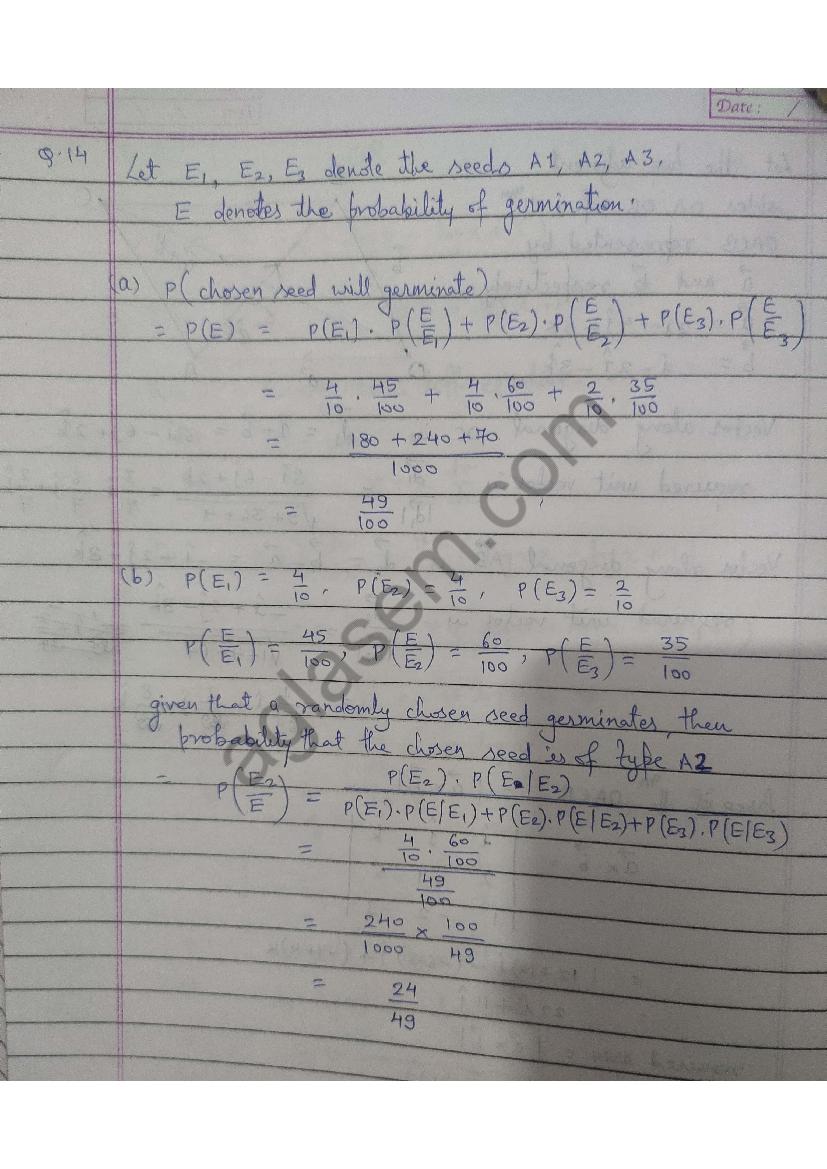 Date: /
Q.14 Let E1, E2, E3 denote the seeds A1, A2, A3.
E denotes the probability of germination.
(a) P(chosen seed will germinate)
= P(E) = P(E1) . P(E/E1) + P(E2) . P(E/E2) + P(E3) . P(E/E3)
= 4/10 . 45/100 + 4/10 . 60/100 + 2/10 . 35/100
= 180 + 240 + 70 / 1000
= 49/100
(b) P(E1) = 4/10, P(E2) = 4/10, P(E3) = 2/10
P(E/E1) = 45/100, P(E/E2) = 60/100, P(E/E3) = 35/100
given that a randomly chosen seed germinates, then
probability that the chosen seed is of type A2
= P(E2/E) = P(E2) . P(E|E2) / P(E1).P(E|E1)+P(E2).P(E|E2)+P(E3).P(E|E3)
= 4/10 . 60/100 / 49/100
= 240/1000 × 100/49
= 24/49
aglasem.com